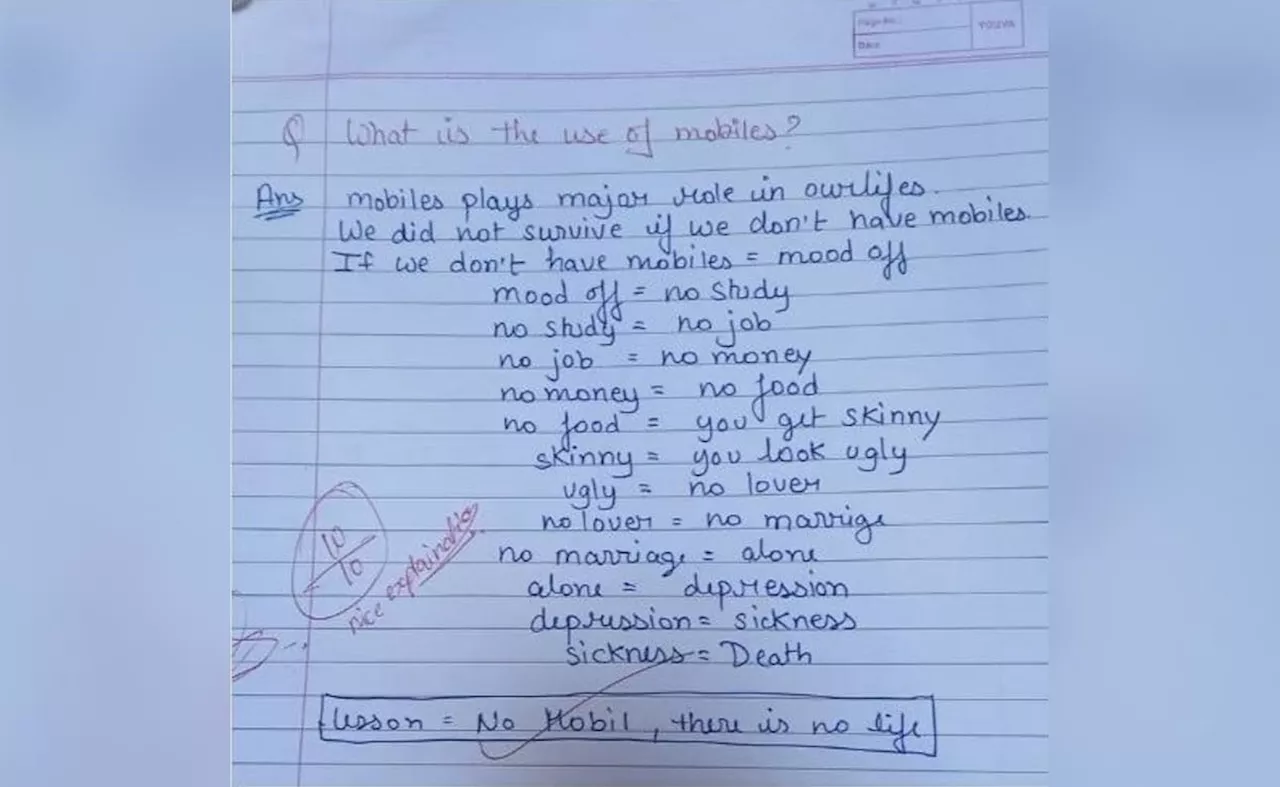 Page No.:
Date
YOUVA
Q What is the use of mobiles?
Ans mobiles plays major role in our lifes.
We did not survive if we don't have mobiles.
If we don't have mobiles = mood off
mood off = no study
no study = no job
no job = no money
no money = no food
no food = you get skinny
skinny = you look ugly
ugly = no lover
no lover = no marrige
no marriage = alone
alone = depression
depression = sickness
sickness = Death
10/10
nice explaination
lesson = No Mobil, there is no life